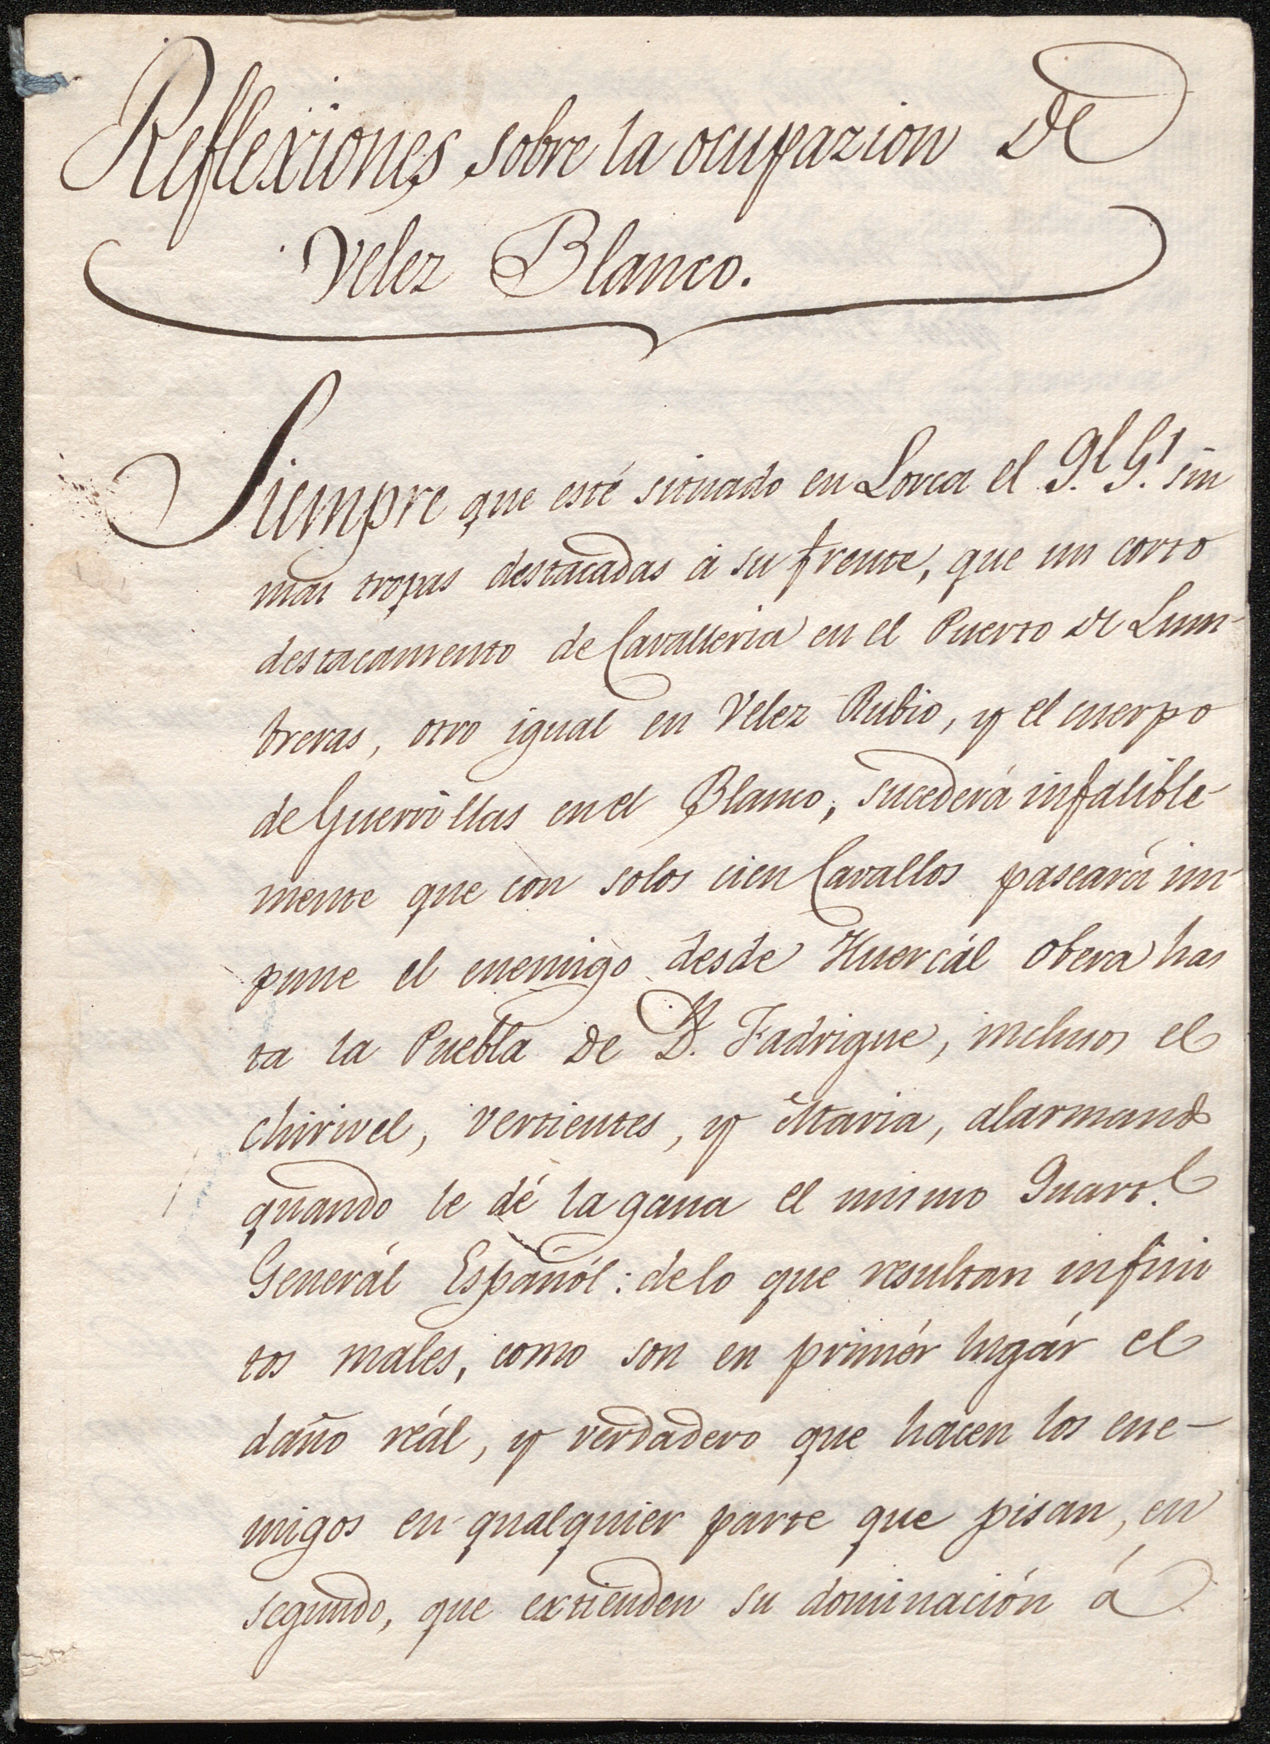 Reflexiones sobre la ocupazion de
Velez Blanco.
Siempre que esté situado en Lorca el Ql. Gl. sin
mas tropas destacadas á su frente, que un corto
destacamento de Cavalleria en el Puerto de Lum-
breras, otro igual en Velez Rubio, y el cuerpo
de Guerrillas en el Blanco, sucederá infalible-
mente que con solos cien Cavallos paseará im-
pune el enemigo desde Huercál Obera has
ta la Puebla de D. Fadrique, inclusos el
Chirivel, Vertientes, y Maria, alarmando
quando le dé la gana el mismo Quartl.
Generál Españól: de lo que resultan infini
tos males, como son en primér lugár el
daño reál, y verdadero que hacen los ene-
migos en qualquier parte que pisan, en
segundo, que extienden su dominación á